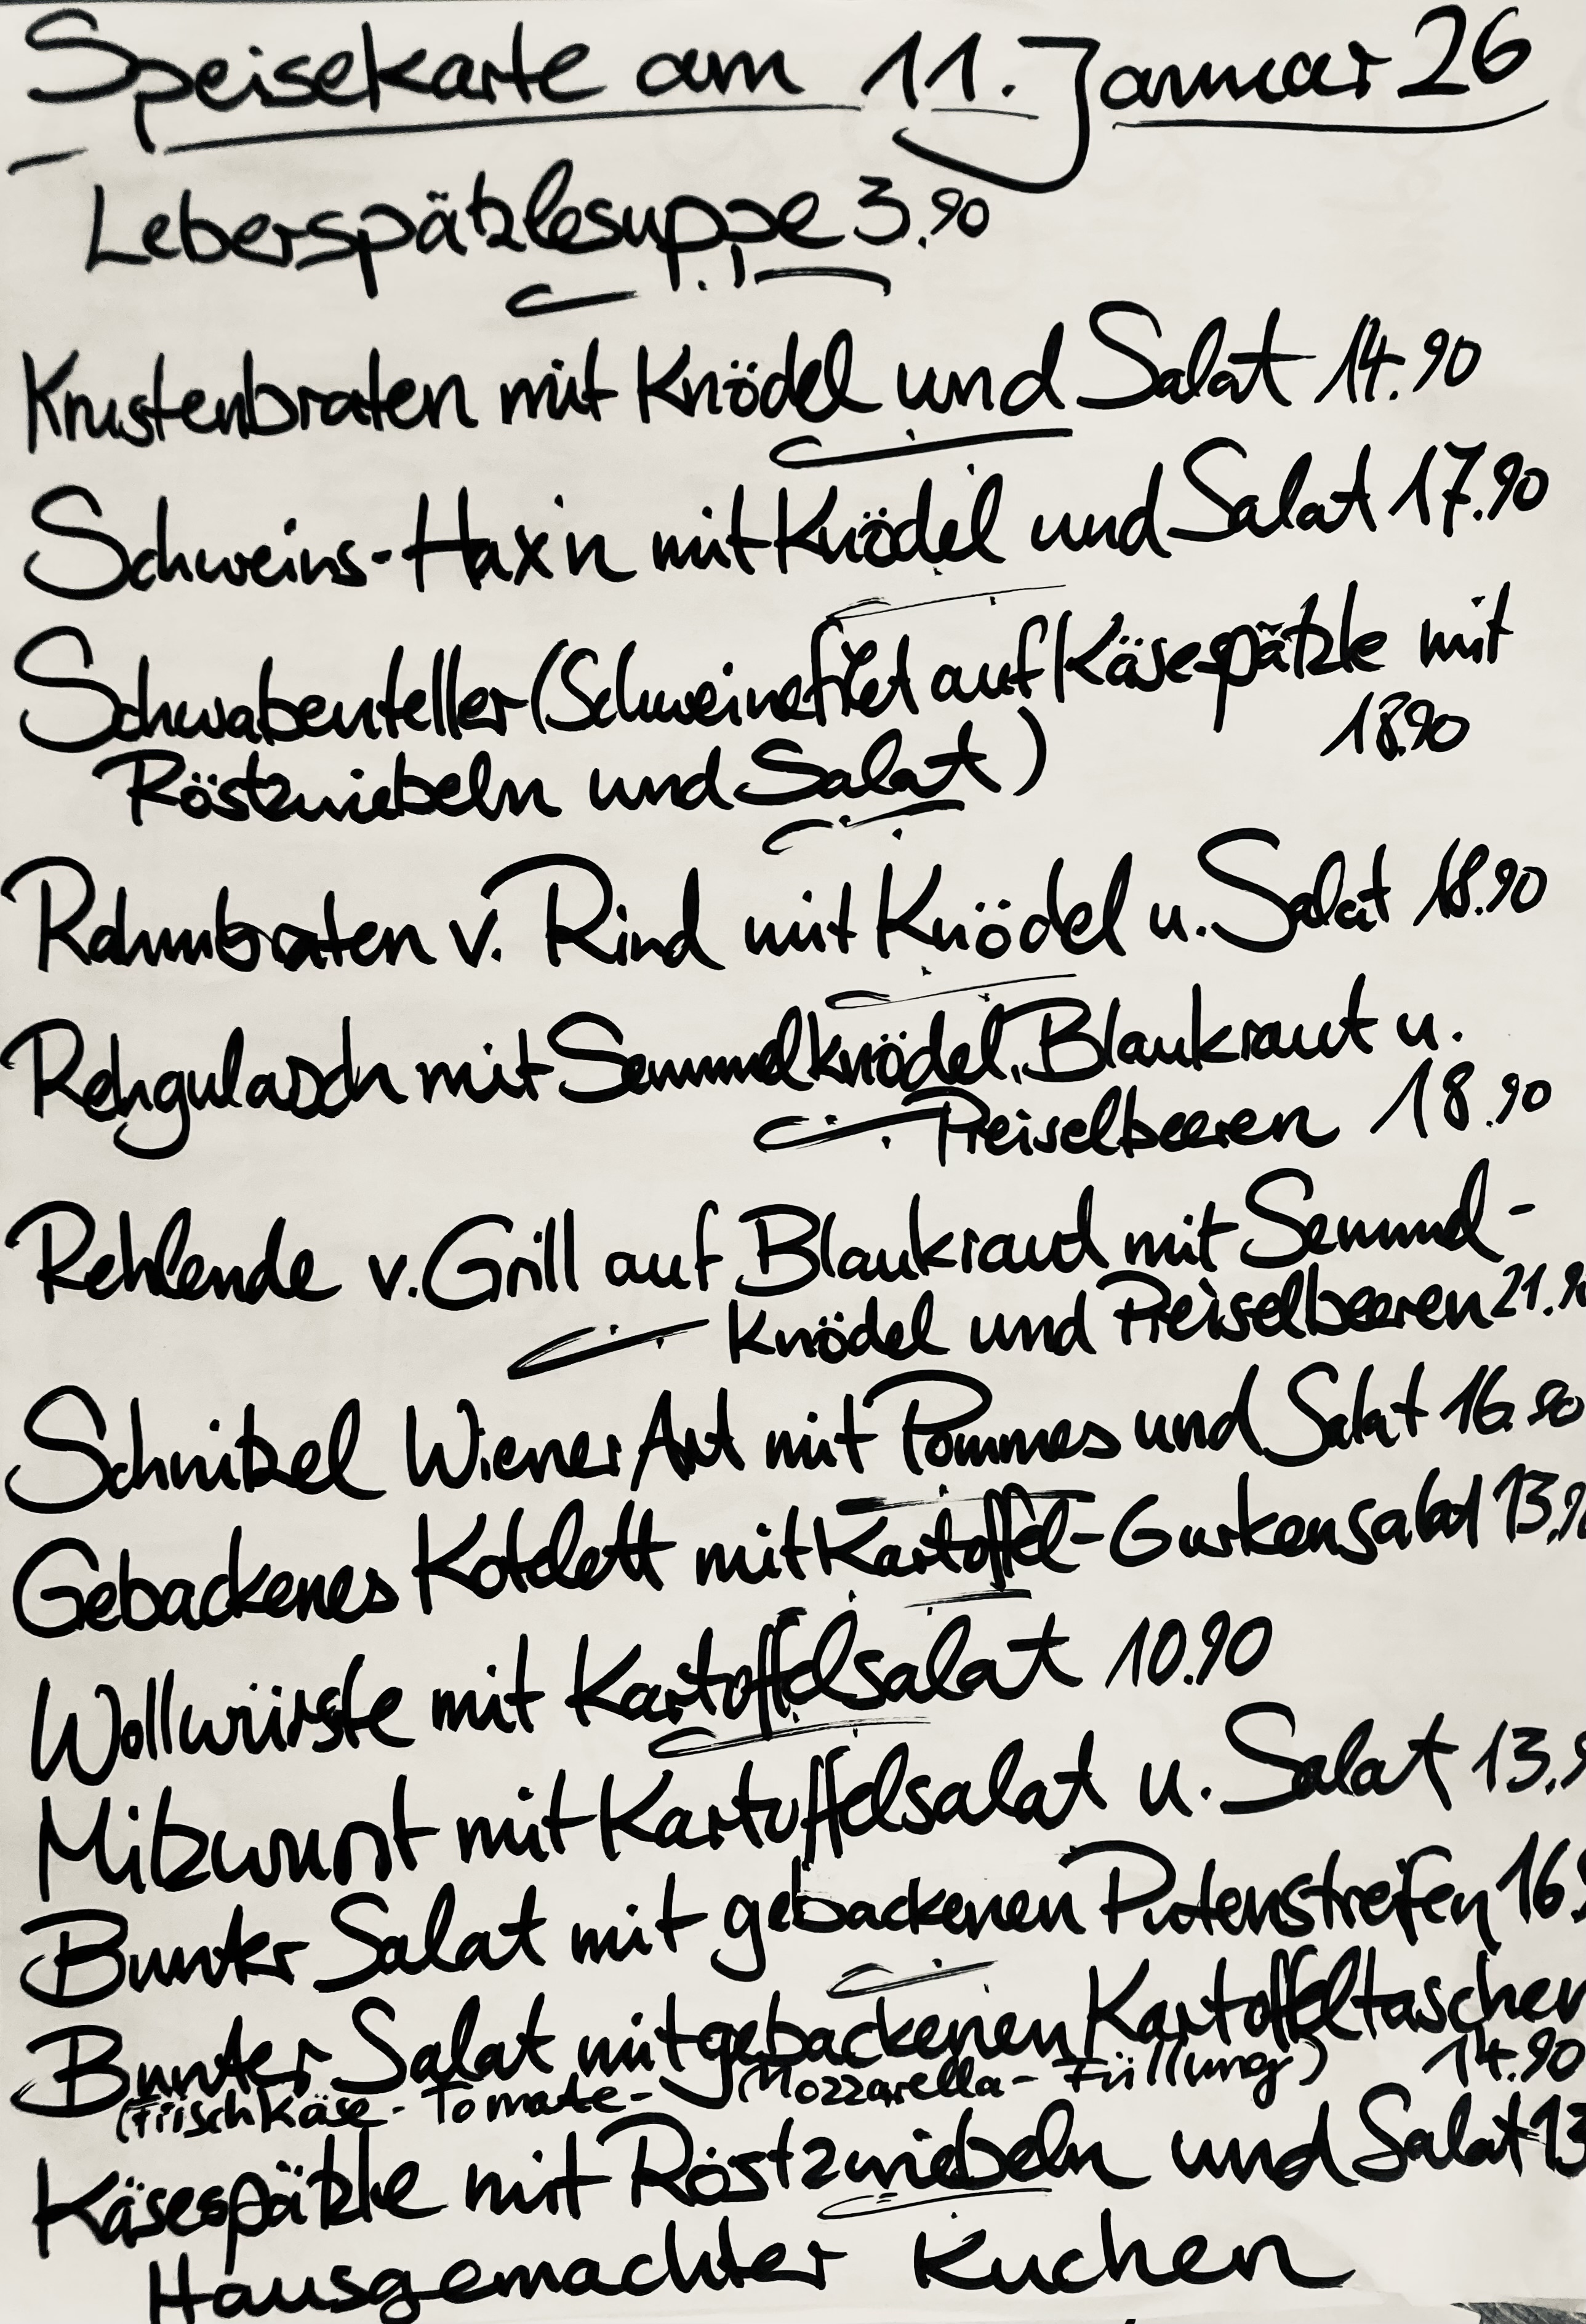 Speisekarte am 11. Januar 26
Leberspätzlesuppe 3.90
Krustenbraten mit Knödel und Salat 14.90
Schweins-Hax'n mit Knödel und Salat 17.90
Schwabenteller (Schweinefilet auf Käsespätzle mit
Röstzwiebeln und Salat) 18.90
Rahmbraten v. Rind mit Knödel u. Salat 18.90
Rehgulasch mit Semmelknödel, Blaukraut u.
Preiselbeeren 18.90
Rehlende v. Grill auf Blaukraut mit Semmel-
Knödel und Preiselbeeren 21.9
Schnitzel Wiener Art mit Pommes und Salat 16.90
Gebackenes Kotelett mit Kartoffel-Gurkensalat 13.9
Wollwürste mit Kartoffelsalat 10.90
Milzwurst mit Kartoffelsalat u. Salat 13.
Bunter Salat mit gebackenen Putenstreifen 16.
Bunter Salat mit gebackenen Kartoffeltaschen
(Frischkäse-Tomate-Mozzarella-Füllung) 14.90
Käsespätzle mit Röstzwiebeln und Salat 13
Hausgemachter Kuchen